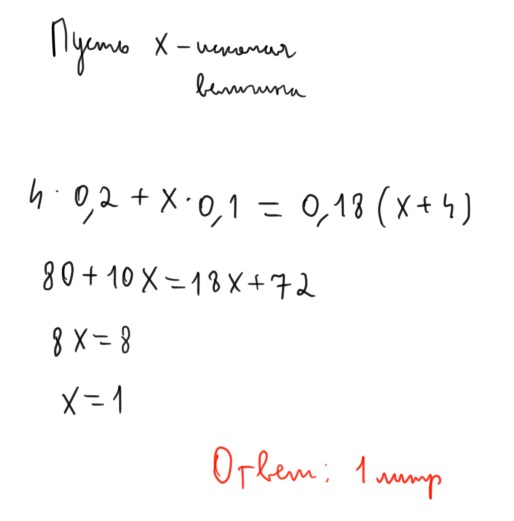 Пусть x - искомая
величина
4 · 0,2 + x · 0,1 = 0,18 (x + 4)
80 + 10x = 18x + 72
8x = 8
x = 1
Ответ: 1 литр